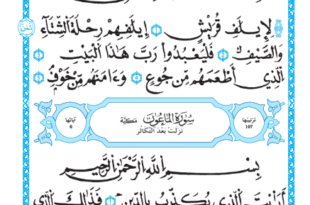 لِإِيلَٰفِ قُرَيْشٍ ۝١ إِۦلَٰفِهِمْ رِحْلَةَ ٱلشِّتَآءِ
وَٱلصَّيْفِ ۝٢ فَلْيَعْبُدُوا۟ رَبَّ هَٰذَا ٱلْبَيْتِ ۝٣
ٱلَّذِىٓ أَطْعَمَهُم مِّن جُوعٍ وَءَامَنَهُم مِّنْ خَوْفٍۭ ۝٤
ترتيبها ١٠٧ سُورَةُ المَاعُونِ مَكيّة آياتها
نزلت بعد التكاثر
بِسْمِ ٱللَّهِ ٱلرَّحْمَٰنِ ٱلرَّحِيمِ
أَرَءَيْتَ ٱلَّذِى يُكَذِّبُ بِٱلدِّينِ ۝١ فَذَٰلِكَ ٱلَّذِى